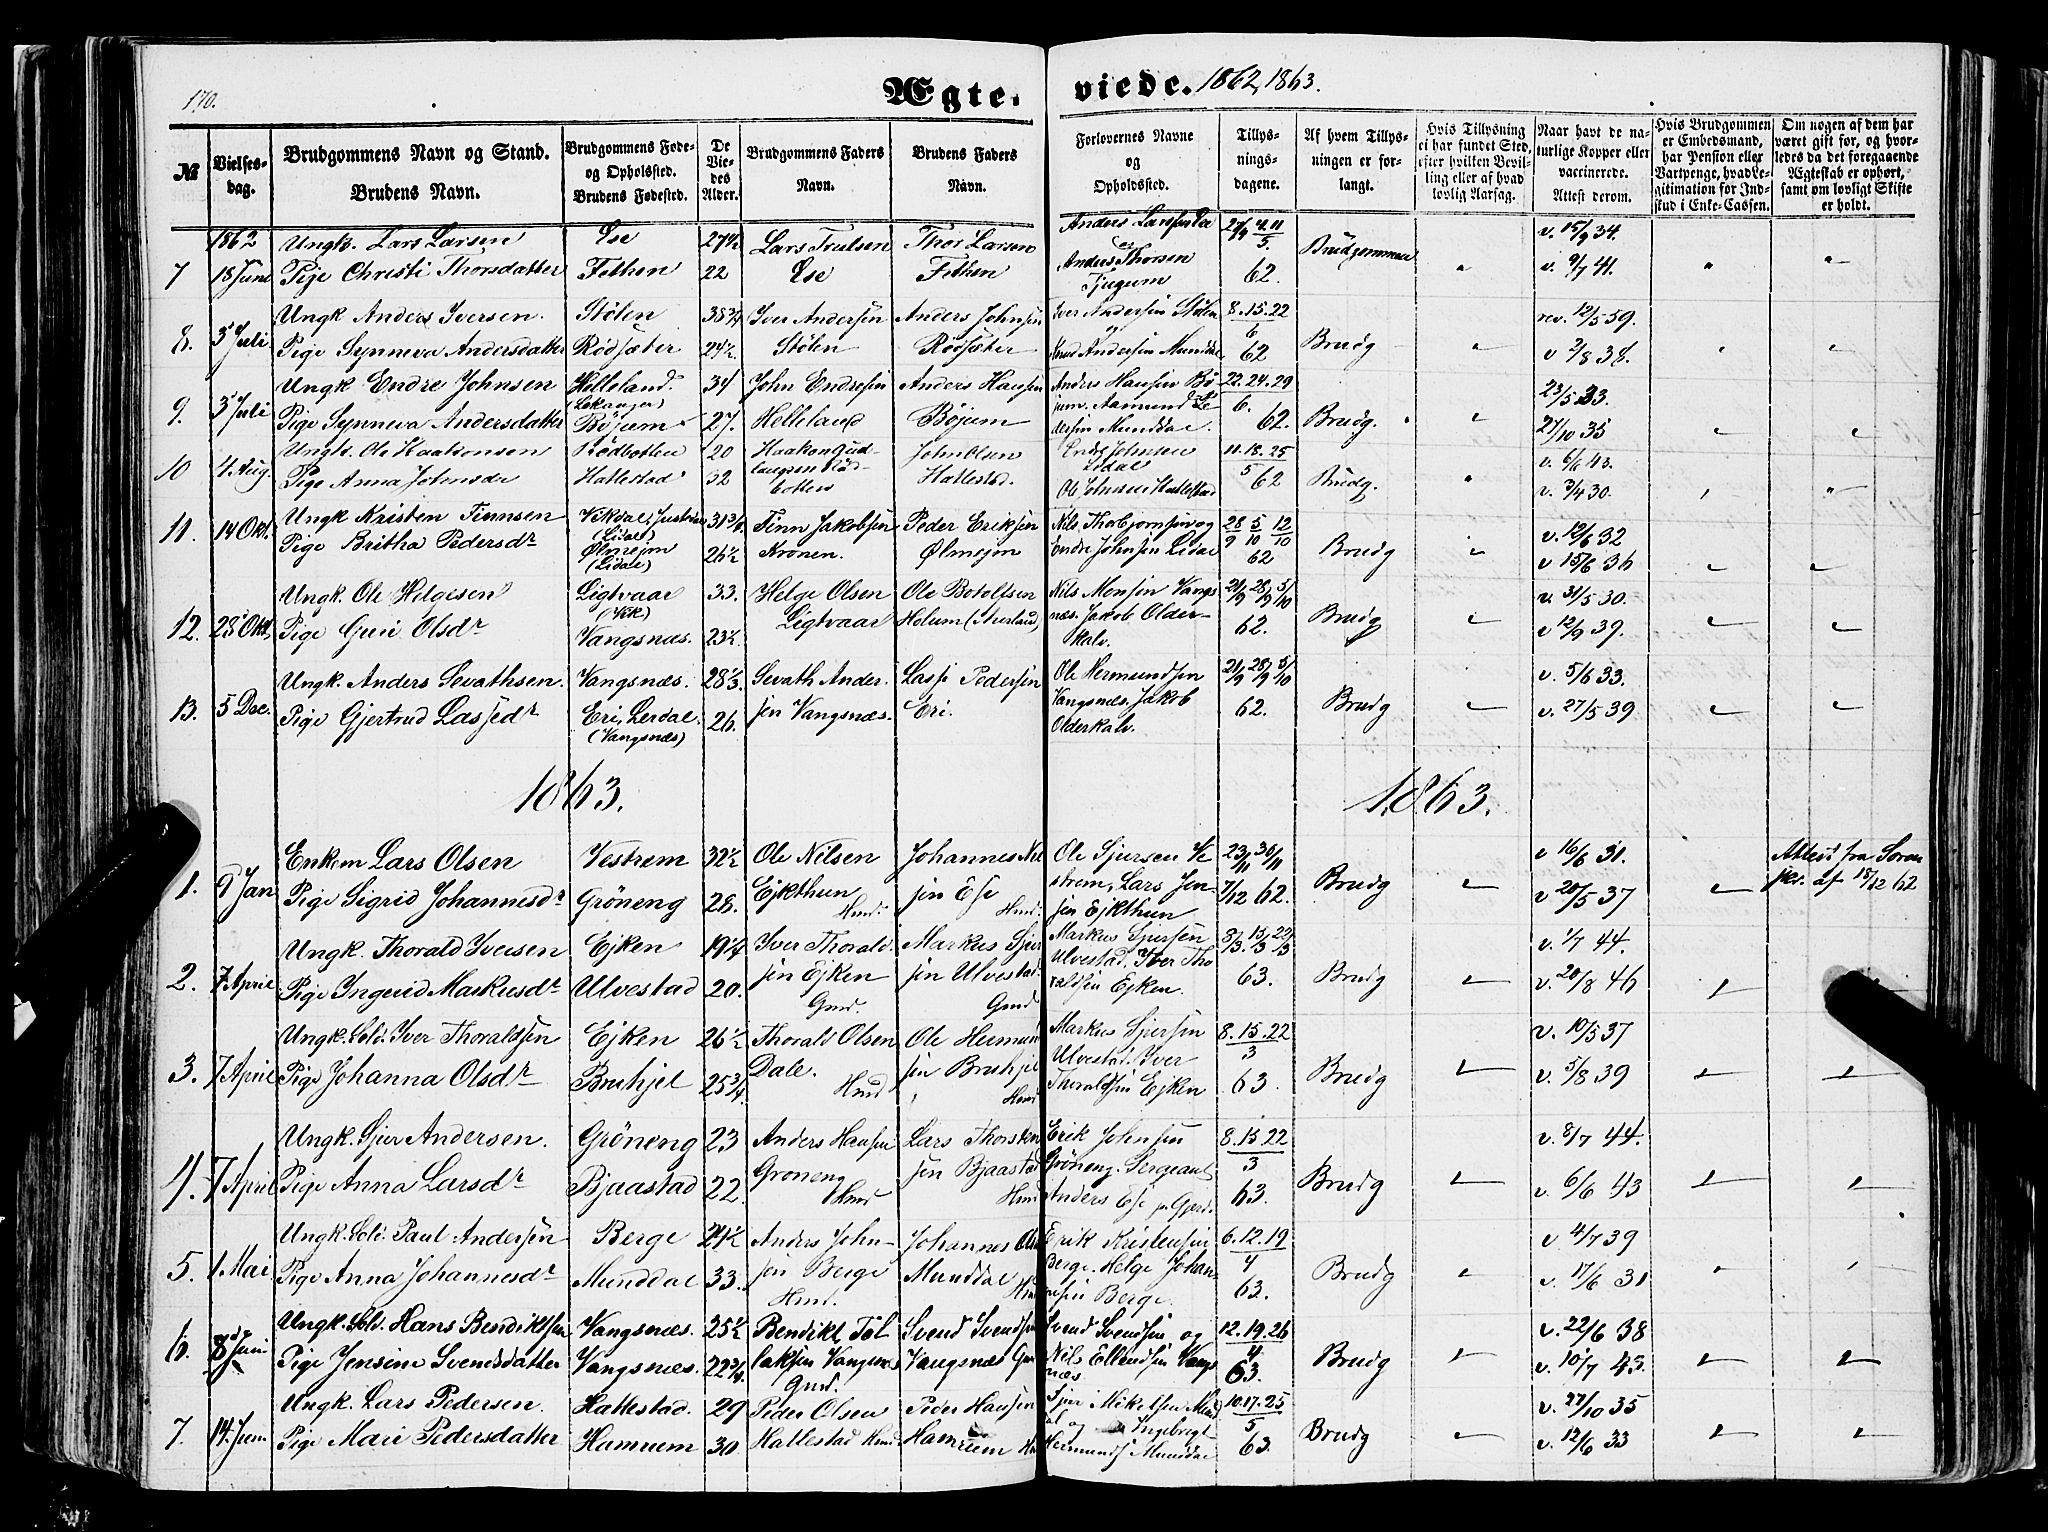 170.
Ægte-
viede. 1862, 1863.
№
Vielses-
dag.
Brudgommens Navn og Stand.
Brudens Navn.
Brudgommens Føde-
og Opholsted.
Brudens Fødested.
De
Vie-
des
Alder.
Brudgommens Faders
Navn.
Brudens Faders
Navn.
Forlovernes Navne
og
Opholdssted.
Tillys-
nings-
dagene.
Af hvem Tillys-
ningen er for-
langt.
Hvis Tillysning
ei har fundet Sted,
efter hvilken Bevil-
ling eller af hvad
lovlig Aarsag.
Naar havt de na-
turlige Kopper eller
vaccinerede.
Attest derom.
Hvis Brudgommen
er Embedsmand,
har Pension eller
Vartpenge, hvad Le-
gitimation for Ind-
skud i Enke-Cassen.
Om nogen af dem har
været gift før, og hvor-
ledes da det foregaaende
Ægteskab er ophørt,
samt om lovligt Skifte
er holdt.
1862 Ungk. Lars Larsen Ese 27½ Lars Trulsen Thor Larsen Anders Larsen v. 15/9 34.
7 18 Juni Pige Christi Thorsdatter Fethen 22 Ese Fethen Anders Thorsen Tjugum 62. Brudgommen v. 9/7 41.
Ungk Anders Iversen. Stølen 38¾ Iver Andersen Anders Johnsen Iver Andersen Stølen 8.15.22 rev. 12/5 59.
8. 3 Juli Pige Synneva Andersdatter Rødsæter 24½ Stølen Rødsæter Andersen Munddal 6 62 Brudg v 2/8 38.
Ungk Endre Johnsen Helleland. 34 John Endresen Anders Hansen Anders Hansen Bø- 22.24.29 23/5 33.
9. 3 Juli Pige Synneva Andersdatter (Lekanger) Bøjum 27. Helleland Bøjum jum. Aamund dersen Munddal. 6. 62. Brudg. 27/10 35
Ungk. Ole Haakonsen Rødbotten 20 Haakon Gud- John Olsen Endre Johnsen Lidal 11.18.25 v. 6/6 43.
10 4 Aug. Pige Anna Johnsdr Hallestad 32 laugsen Rød- botten Hallestad. Ole Johnsen Hallestad 5 62 Brudg. v. 3/4 30.
Ungk Kristen Finnsen Vikdal, (Lidal) 31¾ Finn Jakobsen Peder Eriksen Nils Thorbjørnsen og 28/9 5/10 12/10 v. 12/6 32
11. 14 Okt. Pige Britha Pedersdr Ølmejm (Lidal) 26½ Kronen. Ølmejm Endre Johnsen Lidal 62 Brudg v 15/6 36
Ungk. Ole Helgesen Ligtvaar (Vik) 33. Helge Olsen Ole Botolfsen Nils Monsen Vangs- 21/9 28/9 5/10 v. 31/5 30.
12. 23 Okt. Pige Guri Olsdr Vangsnæs. 23½ Ligtvaar Helum (Aurland) næs. Jakob Older- skalv. 62. Brudg v 12/9 39.
Ungk. Anders Sevathsen. Vangsnæs. 28⅓. Sevath Ander- Lasse Pedersen Ole Hermundsen 21/9 28/9 5/10 v. 5/6 33.
13. 5 Dec. Pige Gjertrud Lassedr Eri, Lerdal. (Vangsnæs) 26. sen Vangsnæs. Eri. Vangsnæs. Jakob Olderskalv. 62. Brudg v. 27/5 39
1863. 1863.
Enkem Lars Olsen Vestrem 32½ Ole Nilsen Johannes Nil Ole Sjursen Ve 23/11 30/11 v 16/6 31. Attest fra Soren
1. 9 Jan Pige Sigrid Johannesdr Grøneng 28. Ejkthun Hmd. sen Ese Hmd. strem, Lars Jen- sen Ejkthun 7/12 62. Brudg v 20/5 37 skr. af 18/12 62
Ungk. Thorald Iversen Ejken 19¼ Iver Thorald- Markus Sjur Markus Sjursen 8/3. 15/3 22/3 v. 1/7 44.
2. 7 April Pige Ingerid Markusdr Ulvestad 20. sen Ejken Gmd. sen Ulvestad. Gmd Ulvestad. Iver Tho raldsen Ejken. 63. Brudg v. 20/8 46
Ungk. Sold. Iver Thoraldsen Ejken 26½ Thorald Olsen Ole Hermund Markus Sjursen 8.15.22 v. 10/5 37
3. 7 April Pige Johanna Olsdr Bruhjel 25¾. Dale. Hmd sen Bruhjel Hmd Ulvestad. Iver Thoraldsen Ejken 3 63. Brudg v. 5/8 39
Ungk. Sjur Andersen. Grøneng 23 Anders Hansen Lars Thorsten Erik Johnsen 8.15.22 v. 8/7 44.
4. 7 April Pige Anna Larsdr Bjaastad 22. Grøneng Hmd sen Bjaastad Hmd Grøneng. Sergeant Anders Ese 3 63. Brudg v. 6/6 43
Ungk. Sold. Paul Andersen Berge 24½ Anders John- Johannes Ols Erik Kristensen 6.12.19 v 4/7 39
5. 1 Mai Pige Anna Johannesdr Munddal 33. sen Berge Hmd. Munddal Hmd Berge. Helge Johan- nesen Berge. 4 63. Brudg v. 17/6 31
Ungk. Sold. Hans Bendiktsen Vangsnæs. 25½ Bendikt Tol Svend Svendsen Svend Svendsen og 12.19.26 v. 22/6 38
6. 8 Juni Pige Jensine Svendsdatter Vangsnæs. 22¾ laksen Vangsnæs Gmd. Vangsnæs Gm Nils Ellendsen Vangs næs 4 63. Brudg v. 10/7 43.
Ungk. Lars Pedersen. Hallestad. 29 Peder Olsen Peder Hansen Sjur Mikelsen Mund 10.17.25 v. 27/10 35
7. 14 Juni Pige Mari Pedersdatter Hamrum 30 Hallestad Hmd Hamrum Hm dal og Ingebrigt Hermunds Munddal 5 63. Brudg v. 12/6 33